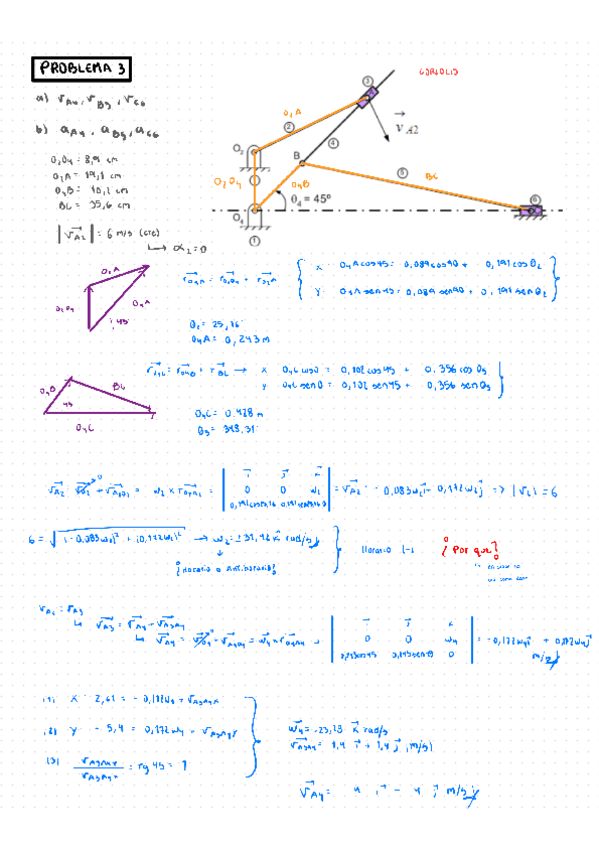 PROBLEMA 3
CORIOLIS
a) VA4, VB5, VC6
b) aA4, aB5, aC6
O2O4 = 8,9 cm
O2A = 19,1 cm
O4B = 10,2 cm
BC = 35,6 cm
|VA2| = 6 m/s (cte)
↳ α2 = 0
O2A
2
3
4
VA2
O2
B
5
BC
O2O4
O4B
θ4 = 45°
6
O4
1
O2A
O2O4
O4A
45
rO4A = rO4O2 + rO2A
x O4A cos45 = 0,089 cos90 + 0,191 cos θ2
y O4A sen45 = 0,089 sen90 + 0,191 sen θ2
θ2 = 25,16°
O4A = 0,243 m
rO4C = rO4B + rBC → x O4C cos0 = 0,102 cos45 + 0,356 cos θ5
y O4C sen0 = 0,102 sen45 + 0,356 sen θ5
O4B
BC
45
O4C
O4C = 0.428 m
θ5 = 348,31°
VA2 = VO2 + VA2O2 = ω2 x rO2A2 =
i j k
0 0 ω2
= VA2 = -0,083ω2 i + 0,172ω2 j => |V2| = 6
6 = √(-0,083ω2)² + (0,172ω2)² → ω2 = ±31,42 k rad/s
¿Horario o Antihorario?
Horario (-)
¿Por que?
VA2 = VA3
↳ VA3 = VA4 + VA3A4
↳ VA4 = VO4 + VA4O4 = ω4 x rO4A4 =
i j k
0 0 ω4
0,243cos45 0,243sen45 0
= -0,172ω4 i + 0,172ω4 j
m/s
(1) x 2,61 = -0,172ω4 + VA3A4x
(2) y -5,4 = 0,172ω4 + VA3A4y
(3) VA3A4y / VA3A4x = tg 45 = 1
ω4 = -23,28 k rad/s
VA3A4 = -1,4 i - 1,4 j (m/s)
VA4 = 4 i - 4 j m/s